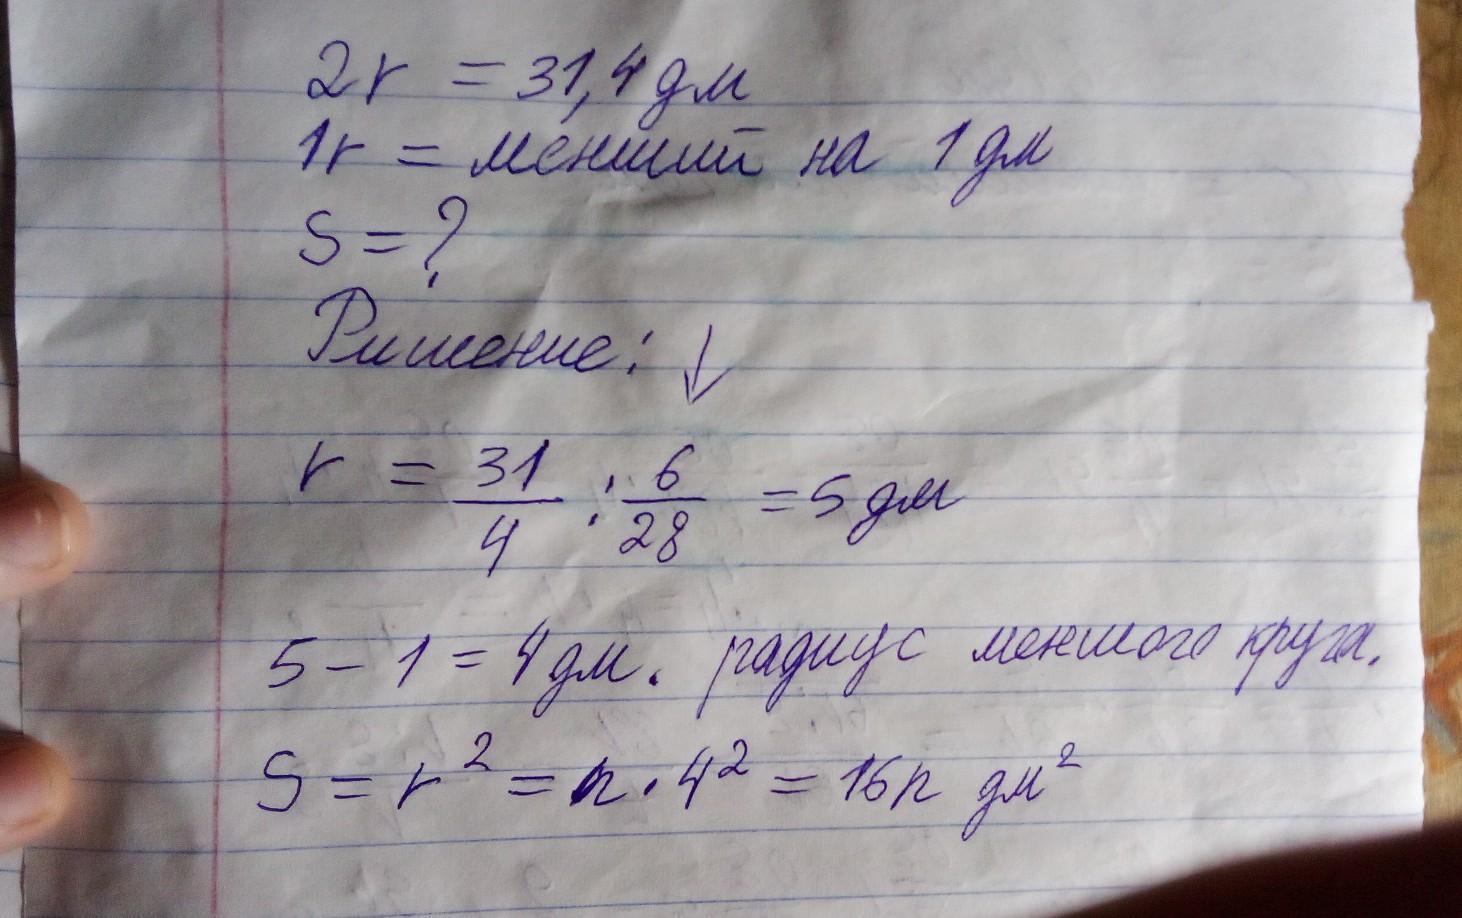 2r = 31,4 дм
1r = менший на 1 дм
S = ?
Ришение: ↓
r = 31/4 : 6/28 = 5 дм
5 - 1 = 4 дм. радиус меншого круга.
S = r² = п · 4² = 16п дм²